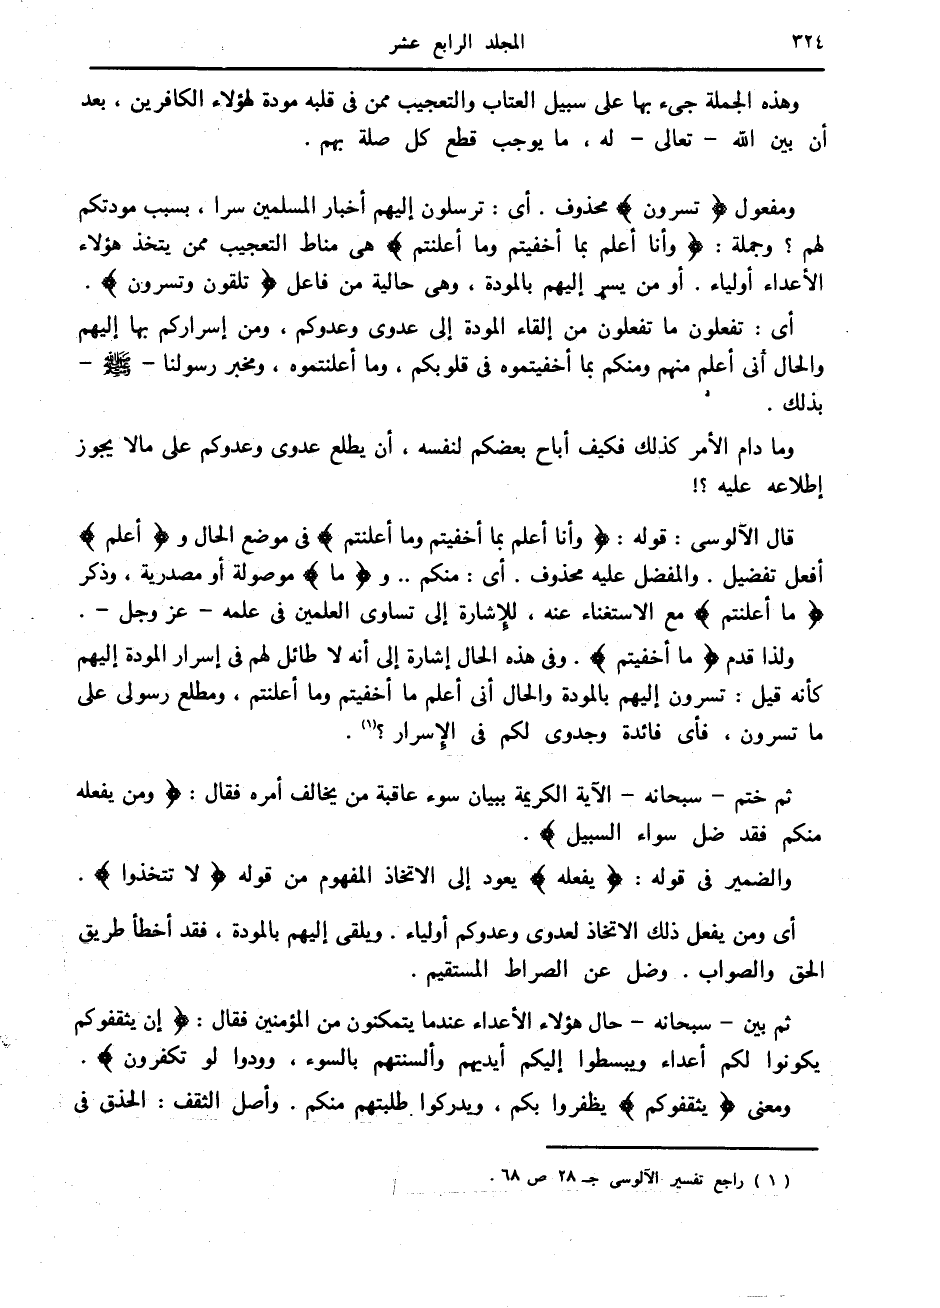 ٣٢٤
المجلد الرابع عشر
وهذه الجملة جىء بها على سبيل العتاب والتعجيب ممن فى قلبه مودة لهؤلاء الكافرين ، بعد
أن بين الله – تعالى – له ، ما يوجب قطع كل صلة بهم .
ومفعول ﴿ تسرون ﴾ محذوف . أى : ترسلون إليهم أخبار المسلمين سرا ، بسبب مودتكم
لهم ؟ وجملة : ﴿ وأنا أعلم بما أخفيتم وما أعلنتم ﴾ هى مناط التعجيب ممن يتخذ هؤلاء
الأعداء أولياء . أو من يسر إليهم بالمودة ، وهى حالية من فاعل ﴿ تلقون وتسرون ﴾ .
أى : تفعلون ما تفعلون من إلقاء المودة إلى عدوى وعدوكم ، ومن إسراركم بها إليهم
والحال أنى أعلم منهم ومنكم بما أخفيتموه فى قلوبكم ، وما أعلنتموه ، ومخبر رسولنا – ﷺ –
بذلك .
وما دام الأمر كذلك فكيف أباح بعضكم لنفسه ، أن يطلع عدوى وعدوكم على مالا يجوز
إطلاعه عليه ؟!
قال الآلوسى : قوله : ﴿ وأنا أعلم بما أخفيتم وما أعلنتم ﴾ فى موضع الحال و ﴿ أعلم ﴾
أفعل تفضيل . والمفضل عليه محذوف . أى : منكم .. و ﴿ ما ﴾ موصولة أو مصدرية ، وذكر
﴿ ما أعلنتم ﴾ مع الاستغناء عنه ، للإشارة إلى تساوى العلمين فى علمه – عز وجل – .
ولذا قدم ﴿ ما أخفيتم ﴾ . وفى هذه الحال إشارة إلى أنه لا طائل لهم فى إسرار المودة إليهم
كأنه قيل : تسرون إليهم بالمودة والحال أنى أعلم ما أخفيتم وما أعلنتم ، ومطلع رسولى على
ما تسرون ، فأى فائدة وجدوى لكم فى الإسرار ؟(١) .
ثم ختم – سبحانه – الآية الكريمة ببيان سوء عاقبة من يخالف أمره فقال : ﴿ ومن يفعله
منكم فقد ضل سواء السبيل ﴾ .
والضمير فى قوله : ﴿ يفعله ﴾ يعود إلى الاتخاذ المفهوم من قوله ﴿ لا تتخذوا ﴾ .
أى ومن يفعل ذلك الاتخاذ لعدوى وعدوكم أولياء . ويلقى إليهم بالمودة ، فقد أخطأ طريق
الحق والصواب . وضل عن الصراط المستقيم .
ثم بين – سبحانه – حال هؤلاء الأعداء عندما يتمكنون من المؤمنين فقال : ﴿ إن يثقفوكم
يكونوا لكم أعداء ويبسطوا إليكم أيديهم وألسنتهم بالسوء ، وودوا لو تكفرون ﴾ .
ومعنى ﴿ يثقفوكم ﴾ يظفروا بكم ، ويدركوا طلبتهم منكم . وأصل الثقف : الحذق فى
( ١ ) راجع تفسير الآلوسى جـ ٢٨ ص ٦٨ .